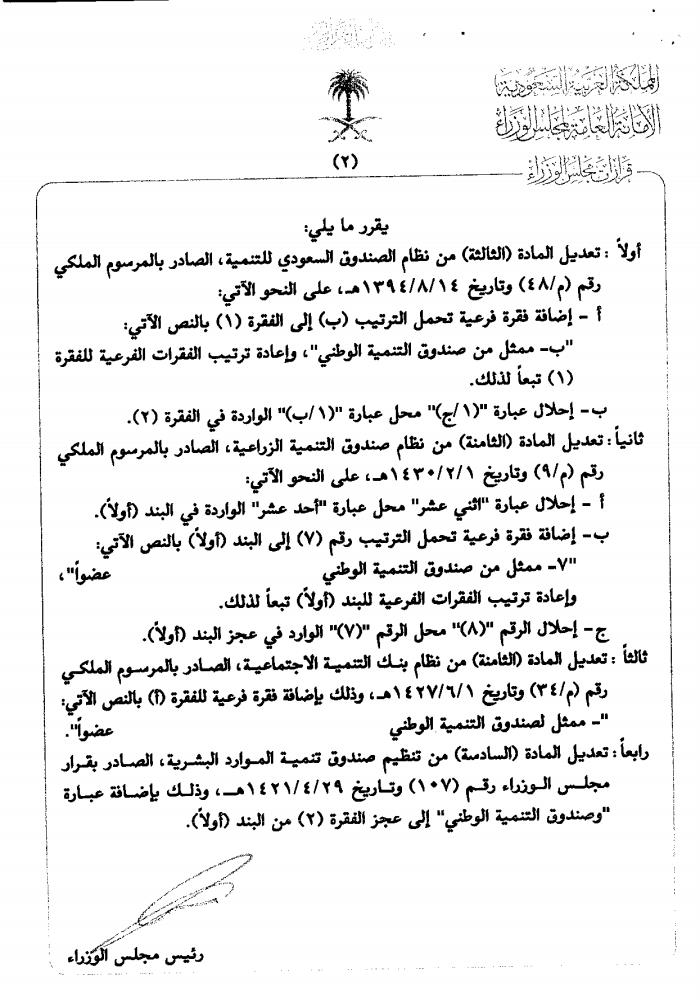 المملكة العربية السعودية
الأمانة العامة لمجلس الوزراء
(٢)
قرارات مجلس الوزراء
يقرر ما يلي:
أولاً : تعديل المادة (الثالثة) من نظام الصندوق السعودي للتنمية، الصادر بالمرسوم الملكي
رقم (م/٤٨) وتاريخ ١٣٩٤/٨/١٤هـ، على النحو الآتي:
أ - إضافة فقرة فرعية تحمل الترتيب (ب) إلى الفقرة (١) بالنص الآتي:
"ب- ممثل من صندوق التنمية الوطني"، وإعادة ترتيب الفقرات الفرعية للفقرة
(١) تبعاً لذلك.
ب- إحلال عبارة "(١/ج)" محل عبارة "(١/ب)" الواردة في الفقرة (٢).
ثانياً: تعديل المادة (الثامنة) من نظام صندوق التنمية الزراعية، الصادر بالمرسوم الملكي
رقم (م/٩) وتاريخ ١٤٣٠/٢/١هـ، على النحو الآتي:
أ - إحلال عبارة "اثني عشر" محل عبارة "أحد عشر" الواردة في البند (أولاً).
ب- إضافة فقرة فرعية تحمل الترتيب رقم (٧) إلى البند (أولاً) بالنص الآتي:
"٧- ممثل من صندوق التنمية الوطني عضواً"،
وإعادة ترتيب الفقرات الفرعية للبند (أولاً) تبعاً لذلك.
ج- إحلال الرقم "(٨)" محل الرقم "(٧)" الوارد في عجز البند (أولاً).
ثالثاً : تعديل المادة (الثامنة) من نظام بنك التنمية الاجتماعية، الصادر بالمرسوم الملكي
رقم (م/٣٤) وتاريخ ١٤٢٧/٦/١هـ، وذلك بإضافة فقرة فرعية للفقرة (أ) بالنص الآتي:
"- ممثل لصندوق التنمية الوطني عضواً".
رابعاً : تعديل المادة (السادسة) من تنظيم صندوق تنمية الموارد البشرية، الصادر بقرار
مجلس الوزراء رقم (١٠٧) وتاريخ ١٤٢١/٤/٢٩هـ، وذلك بإضافة عبارة
"وصندوق التنمية الوطني" إلى عجز الفقرة (٢) من البند (أولاً).
رئيس مجلس الوزراء